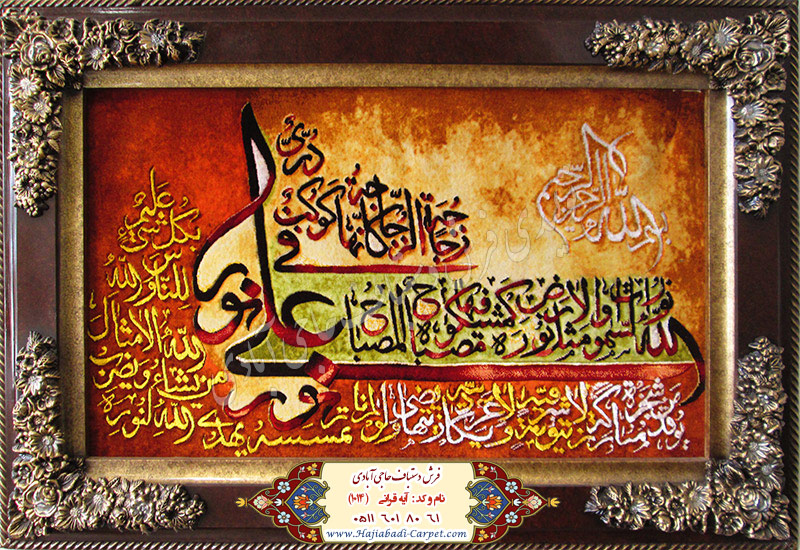 بسم الله الرحمن الرحيم
الله نور السموات والارض مثل نوره كمشكوة فيها مصباح المصباح
في
زجاجة الزجاجة كانها كوكب
درى
يوقد من شجرة مباركة زيتونة لا شرقية ولا غربية يكاد زيتها يضى ولو لم تمسسه نار
نور على نور
يهدى الله لنوره
من يشاء ويضرب
الله الامثال
للناس والله
بكل شىء
عليم
فرش دستباف حاجی آبادی
نام و کد: آیه قرآنی (۱۰۱۴)
۰۵۱۱ ۶۰۱ ۸۰ ۶۱
www.Hajiabadi-Carpet.com